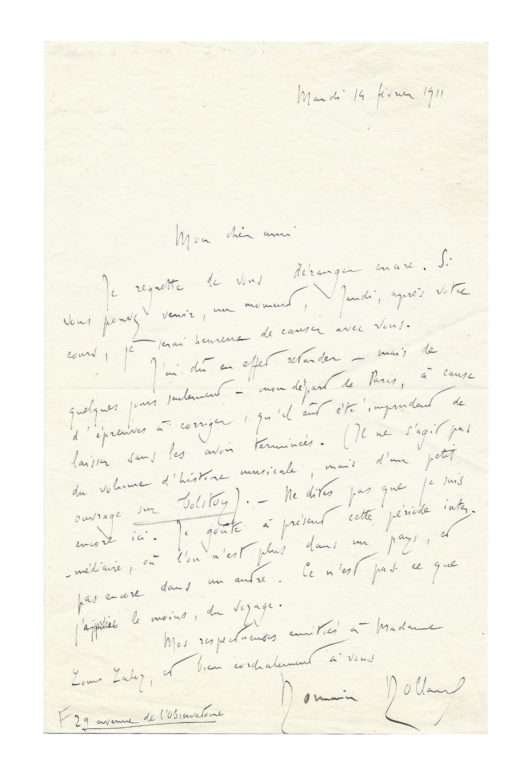 Mardi 14 février 1911
Mon cher ami
Je regrette de vous déranger encore. Si
vous pouvez venir, un moment, Jeudi, après votre
cours, je serai heureux de causer avec vous.
J'ai dû en effet retarder – mais de
quelques jours seulement – mon départ de Paris, à cause
d'épreuves à corriger, qu'il eût été imprudent de
laisser sans les avoir terminées. (Il ne s'agit pas
du volume d'histoire musicale, mais d'un petit
ouvrage sur Tolstoy). – Ne dites pas que je suis
encore ici. Je goûte à présent cette période inter-
-médiaire, où l'on n'est plus dans un pays, et
pas encore dans un autre. Ce n'est pas ce que
j'apprécie le moins, du voyage.
Mes respectueuses amitiés à Madame
Louis et bien cordialement à vous
Romain Rolland
29 avenue de l'Observatoire